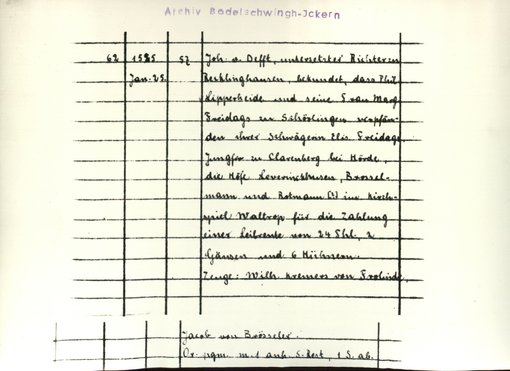 Archiv Bodelschwingh-Ickern
62 1525 57 Joh. v. Defft, untersetzter Richter zu
Jan. 25. Recklinghausen, bekundet, dass Phil.
Lipperheide und seine Frau Marg.
Freidags zu Schörlingen verpfän-
den ihrer Schwägerin Elis. Freidags,
Jungfer zu Clarenberg bei Hörde,
die Höfe Leverinckhusen, Brössel-
mann und Rotmann (?) im Kirch-
spiel Waltrop für die Zahlung
einer Leibrente von 24 Thl., 2
Gänsen und 6 Hühnern.
Zeuge: Wilh. Kremers von Frolinde,
Jacob von Brösseler.
Or. pgm. m. 1 anh. S.-Rest, 1 S. ab.